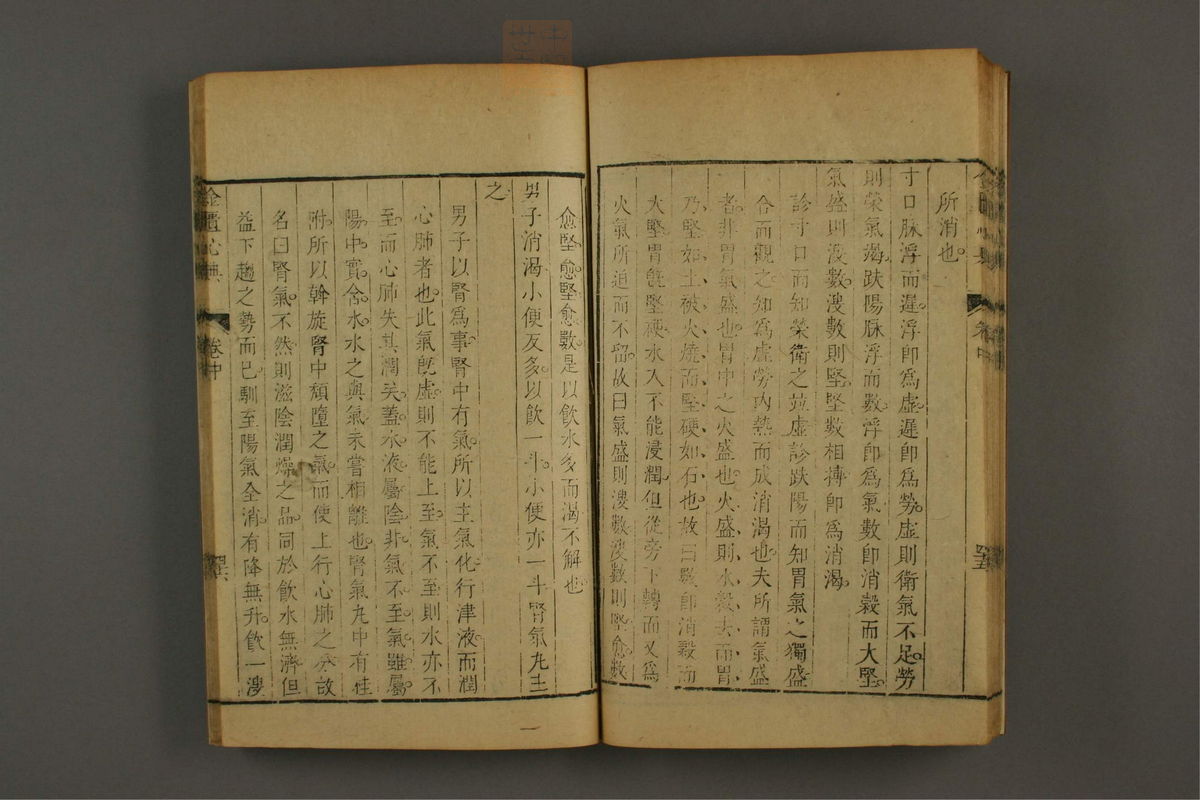 所消也
寸口脉浮而遲浮即為虛遲即為勞虛則衛氣不足勞
則榮氣竭趺陽脉浮而數浮即為氣數即消穀而大堅
氣盛則溲數溲數則堅堅數相搏即為消渴
診寸口而知榮衛之並虛診趺陽而知胃氣之獨盛
合而觀之知為虛勞內熱而成消渴也夫所謂氣盛
者非胃氣盛也胃中之火盛也火盛則水穀去而胃
乃堅如土被火燒而堅硬如石也故曰數即消穀而
大堅胃旣堅硬水入不能浸潤但從旁下轉而又為
火氣所迫而不留故曰氣盛則溲數溲數則堅愈數
愈堅愈堅愈數是以飲水多而渴不解也
男子消渴小便反多以飲一斗小便亦一斗腎氣丸主
之
男子以腎為事腎中有氣所以主氣化行津液而潤
心肺者也此氣旣虛則不能上至氣不至則水亦不
至而心肺失其潤矣蓋水液屬陰非氣不至氣雖屬
陽中實含水水之與氣未嘗相離也腎氣丸中有桂
附所以斡旋腎中頹墮之氣而使上行心肺之分故
名曰腎氣不然則滋陰潤燥之品同於飲水無濟但
益下趨之勢而已馴至陽氣全消有降無升飲一溲
金匱心典
卷中